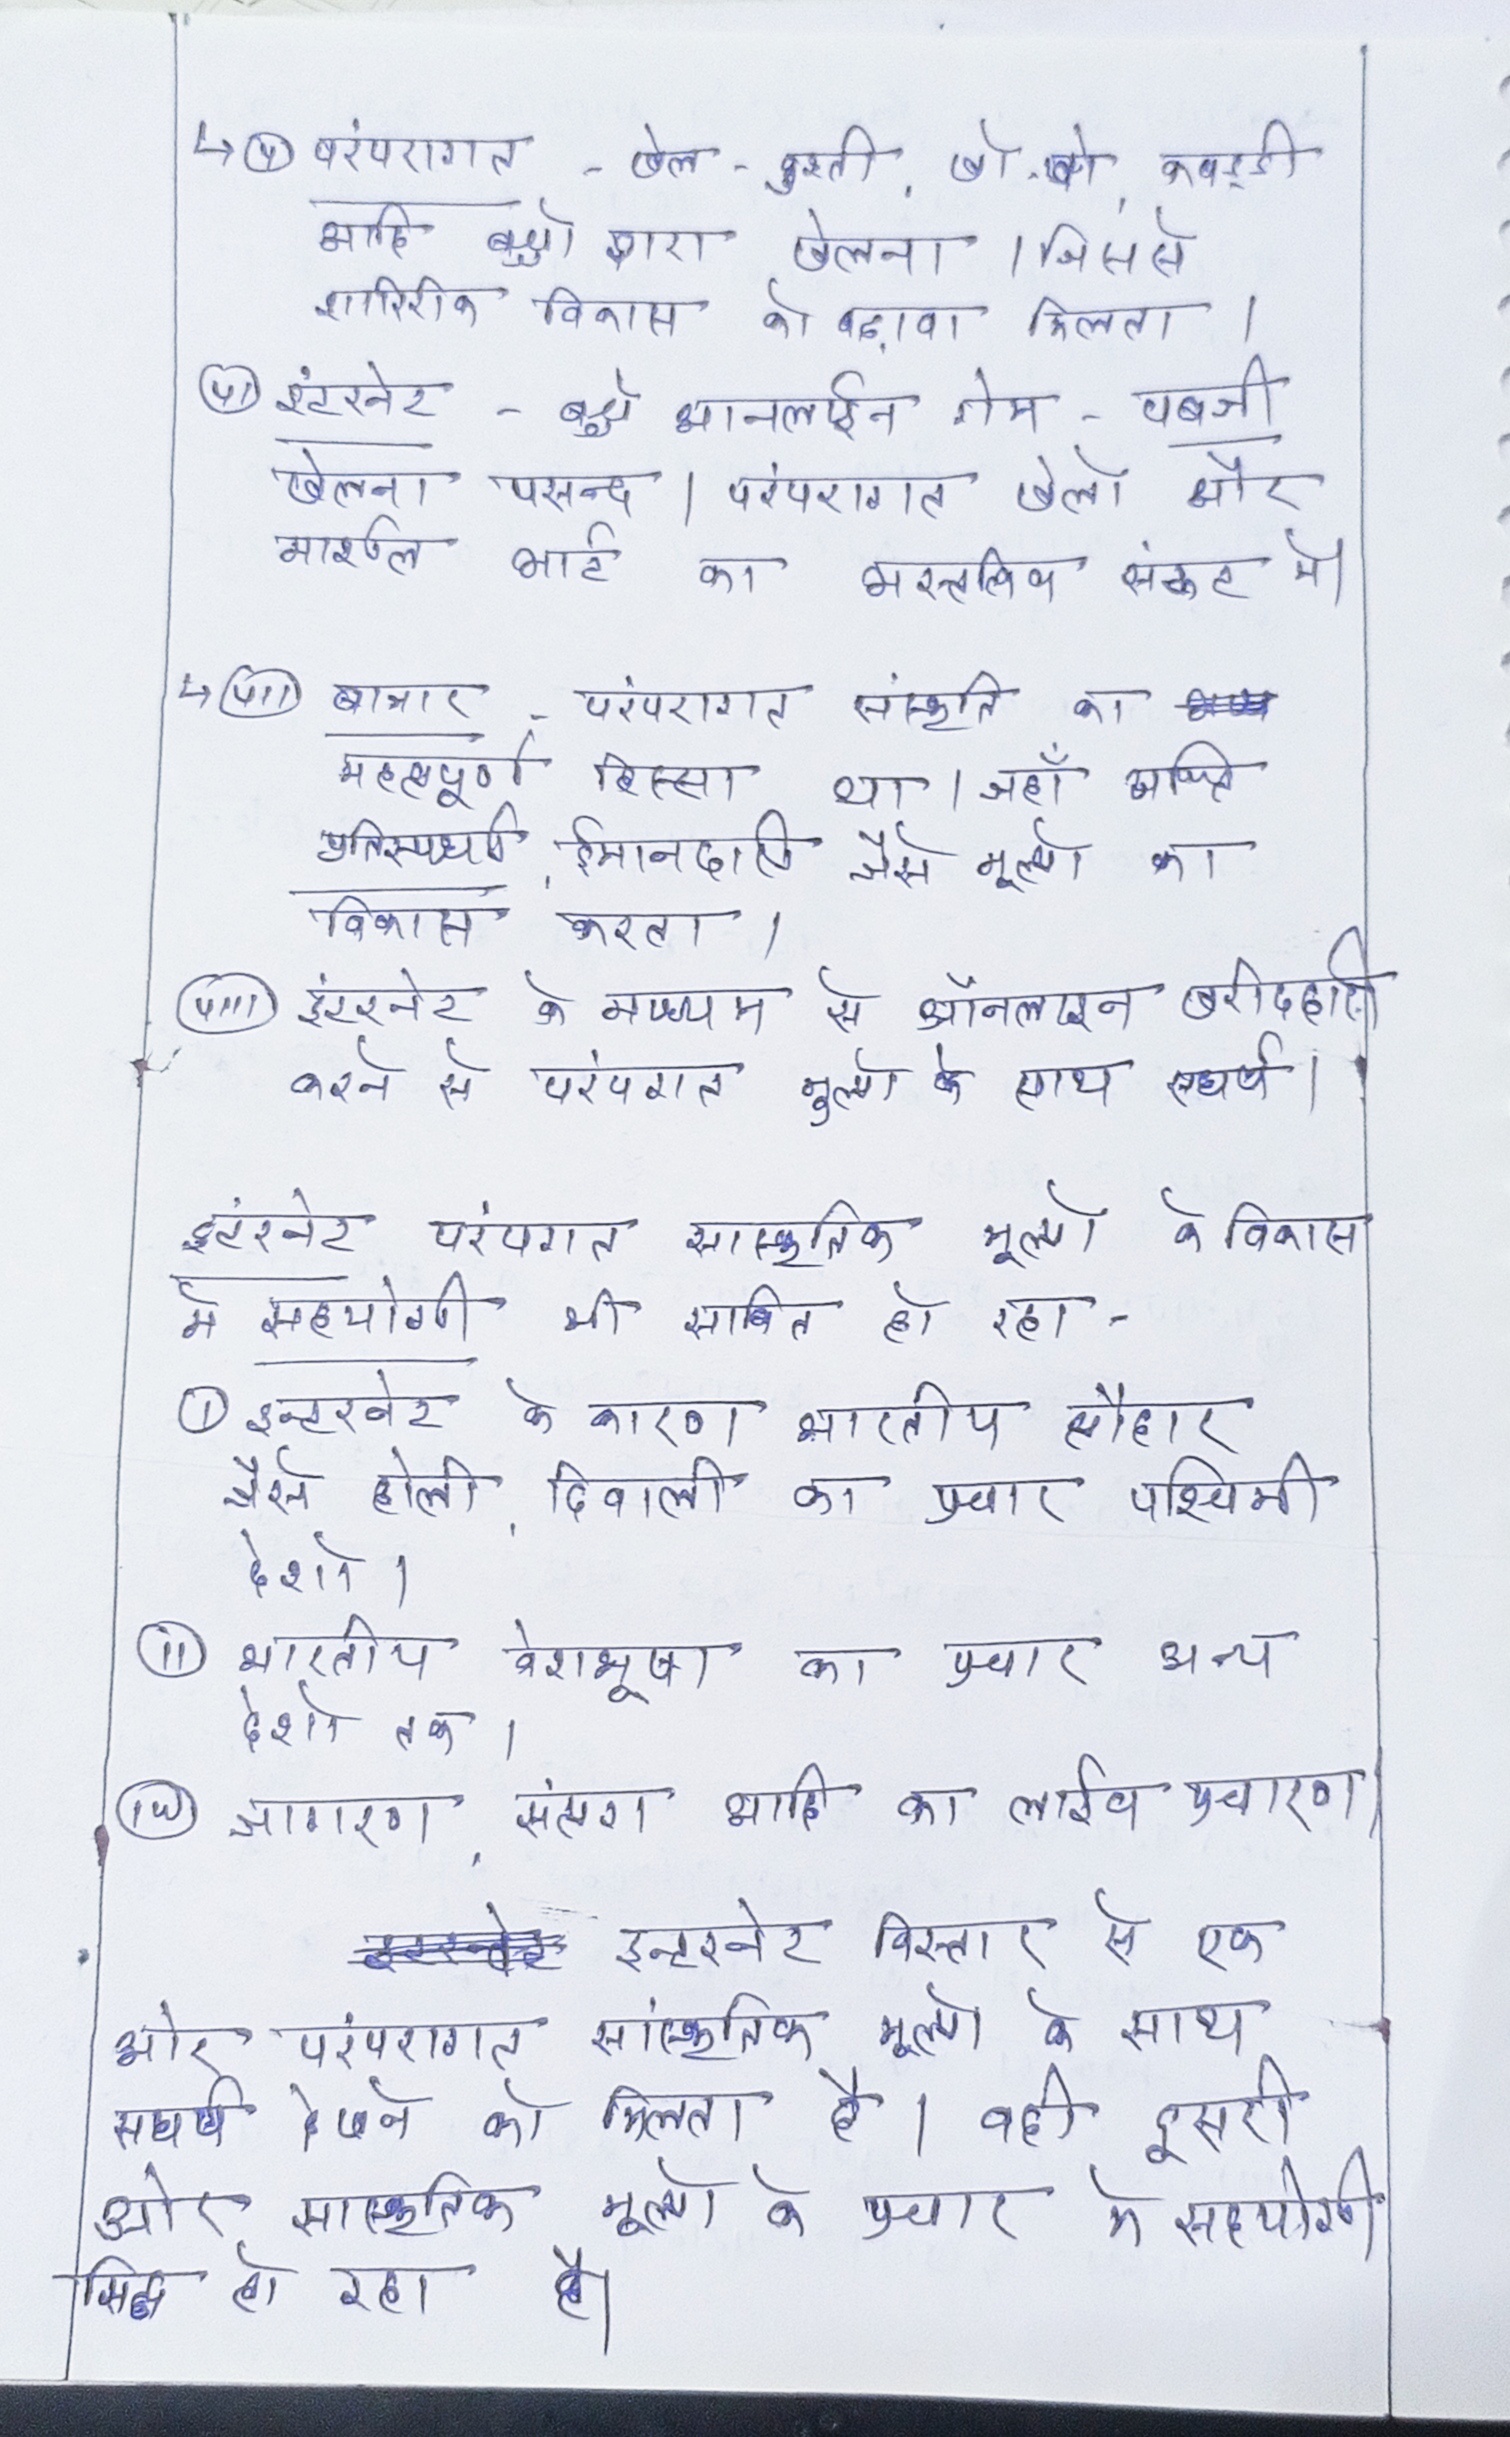 ↳ (v) परंपरागत - खेल - कुश्ती, खो-खो, कबड्डी
आदि बच्चों द्वारा खेलना । जिससे
शारिरीक विकास को बढ़ावा मिलता ।
(vi) इंटरनेट - बच्चे आनलाईन गेम - पबजी
खेलना पसन्द । परंपरागत खेलों और
मार्शल आर्ट का अस्तित्व संकट में।
↳ (vii) बाजार - परंपरागत सांस्कृति का
महत्वपूर्ण हिस्सा था । जहाँ व्यक्ति
प्रतिस्पर्धा, ईमानदारी जैसे मूल्यों का
विकास करता ।
(viii) इंटरनेट के माध्यम से ऑनलाइन खरीददारी
करने से परंपरागत मुल्यों के साथ संघर्ष ।
इंटरनेट परंपरागत सास्कृतिक मूल्यों के विकास
मे सहयोगी भी साबित हो रहा -
(i) इन्टरनेट के कारण भारतीय त्यौहार
जैसे होली, दिवाली का प्रचार पश्चिमी
देशों ।
(ii) भारतीय वेशभूषा का प्रचार अन्य
देशों तक ।
(iv) जागरण, सत्संग आदि का लाईव प्रचारण।
इन्टरनेट विस्तार से एक
ओर परंपरागत सांस्कृतिक मूल्यों के साथ
संघर्ष देखने को मिलता है । वही दूसरी
ओर सास्कृतिक मूल्यों के प्रचार मे सहयोगी
सिद्ध हो रहा है।